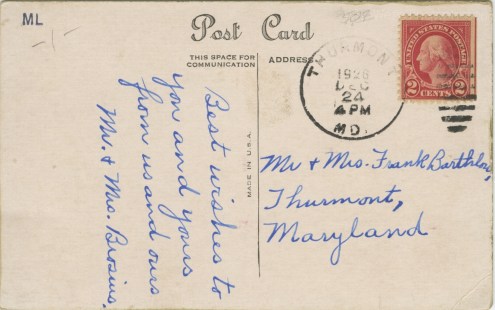 ML
Post Card
THIS SPACE FOR
COMMUNICATION
ADDRESS
MADE IN U.S.A.
UNITED STATES POSTAGE
2 CENTS 2
THURMONT
1926
DEC
24
4 PM
MD.
Best wishes to
you and yours
from us and ours
Mr. & Mrs. Brosius.
Mr & Mrs. Frank
Thurmont,
Maryland